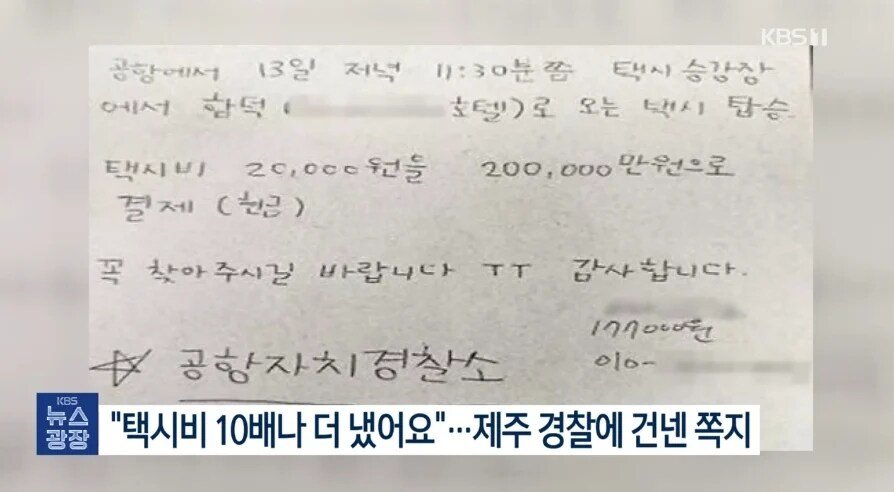 KBS 1
공항에서 13일 저녁 11:30분쯤 택시승강장
에서 함덕 ( 호텔)로 오는 택시 탑승.
택시비 20,000원을 200,000만원으로
결제 (현금)
꼭 찾아주시길 바랍니다 ㅜㅜ 감사합니다.
177000원
☆ 공항자치경찰소
010-
KBS
뉴스
광장
"택시비 10배나 더 냈어요"…제주 경찰에 건넨 쪽지